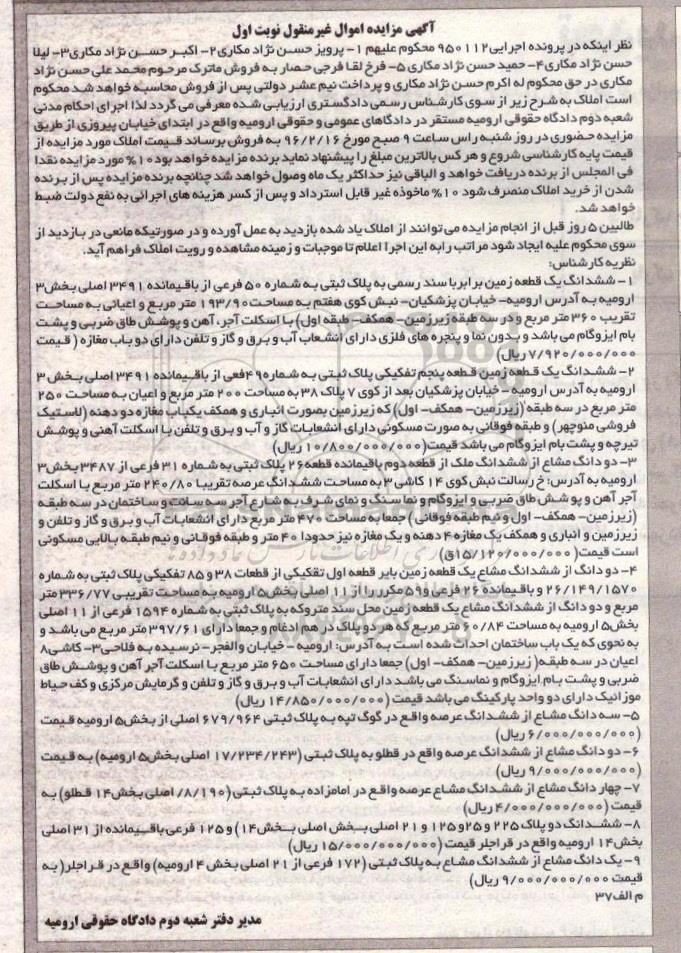 آگهی مزایده اموال غیرمنقول نوبت اول
نظر اینکه در پرونده اجرایی ۹۵۰۱۱۲ محکوم علیهم ۱- پرویز حسن نژاد مکاری ۲- اکبر حسن نژاد مکاری ۳- لیلا
حسن نژاد مکاری ۴- حمید حسن نژاد مکاری ۵- فرخ لقا فرجی حصار به فروش ماترک مرحوم محمد علی حسن نژاد
مکاری در حق محکوم له اکرم حسن نژاد مکاری و پرداخت نیم عشر دولتی پس از فروش محاسبه خواهد شد محکوم
است املاک به شرح زیر از سوی کارشناس رسمی دادگستری ارزیابی شده معرفی می گردد لذا اجرای احکام مدنی
شعبه دوم دادگاه حقوقی ارومیه مستقر در دادگاهای عمومی و حقوقی ارومیه واقع در ابتدای خیابان پیروزی از طریق
مزایده حضوری در روز شنبه راس ساعت ۹ صبح مورخ ۹۶/۲/۱۶ به فروش برساند قیمت املاک مورد مزایده از
قیمت پایه کارشناسی شروع و هر کس بالاترین مبلغ را پیشنهاد نماید برنده مزایده خواهد بود ۱۰% مورد مزایده نقدا
فی المجلس از برنده دریافت خواهد و الباقی نیز حداکثر یک ماه وصول خواهد شد چنانچه برنده مزایده پس از برنده
شدن از خرید املاک منصرف شود ۱۰% ماخوذه غیر قابل استرداد و پس از کسر هزینه های اجرائی به نفع دولت ضبط
خواهد شد.
طالبین ۵ روز قبل از انجام مزایده می توانند از املاک یاد شده بازدید به عمل آورده و در صورتیکه مانعی در بازدید از
سوی محکوم علیه ایجاد شود مراتب را به این اجرا اعلام تا موجبات و زمینه مشاهده و رویت املاک فراهم آید.
نظریه کارشناس:
۱- ششدانگ یک قطعه زمین برابر با سند رسمی به پلاک ثبتی به شماره ۵۰ فرعی از باقیمانده ۳۴۹۱ اصلی بخش۳
ارومیه به آدرس ارومیه- خیابان پزشکیان- نبش کوی هفتم به مساحت ۱۹۳/۹۰ متر مربع و اعیانی به مساحت
تقریب ۳۶۰ متر مربع و در سه طبقه زیرزمین- همکف- طبقه اول) با اسکلت آجر، آهن و پوشش طاق ضربی و پشت
بام ایزوگام می باشد و بدون نما و پنجره های فلزی دارای انشعاب آب و برق و گاز و تلفن دارای دو باب مغازه ( قیمت
۷/۹۲۰/۰۰۰/۰۰۰ ریال)
۲- ششدانگ یک قطعه زمین قطعه پنجم تفکیکی پلاک ثبتی به شماره ۴۹فعی از باقیمانده ۳۴۹۱ اصلی بخش ۳
ارومیه به آدرس ارومیه - خیابان پزشکیان بعد از کوی ۷ پلاک ۳۸ به مساحت ۲۰۰ متر مربع و اعیان به مساحت ۲۵۰
متر مربع در سه طبقه (زیرزمین- همکف- اول) که زیرزمین بصورت انباری و همکف یکباب مغازه دو دهنه (لاستیک
فروشی منوچهر) و طبقه فوقانی به صورت مسکونی دارای انشعابات گاز و آب و برق و تلفن با اسکلت آهنی و پوشش
تیرچه و پشت بام ایزوگام می باشد قیمت (۱۰/۸۰۰/۰۰۰/۰۰۰ ریال)
۳- دو دانگ مشاع از ششدانگ ملک از قطعه دوم باقیمانده قطعه۲۶ پلاک ثبتی به شماره ۳۱ فرعی از ۳۴۸۷ بخش۳
ارومیه به آدرس: خ رسالت نبش کوی ۱۴ کاشی ۳ به مساحت ششدانگ عرصه تقریبا ۲۴۰/۸۰ متر مربع با اسکلت
آجر آهن و پوشش طاق ضربی و ایزوگام و نما سنگ و نمای شرف به شارع آجر سه سانت و ساختمان در سه طبقه
(زیرزمین- همکف- اول و نیم طبقه فوقانی) جمعا به مساحت ۴۷۰ متر مربع دارای انشعابات آب و برق و گاز و تلفن و
زیرزمین و انباری و همکف یک مغازه ۴ دهنه و یک مغازه نیز حدودا ۴۰ متر و طبقه فوقانی و نیم طبقه بالایی مسکونی
است قیمت( ۱۵/۱۲۰/۰۰۰/۰۰۰ق)
۴- دو دانگ از ششدانگ مشاع یک قطعه زمین بایر قطعه اول تفکیکی از قطعات ۳۸ و ۸۵ تفکیکی پلاک ثبتی به شماره
۲۶/۱۴۹/۱۵۷۰ و باقیمانده ۲۶ فرعی و۵۹ مکرر را از ۱۱ اصلی بخش۵ ارومیه به مساحت تقریبی ۳۳۶/۷۷ متر
مربع و دو دانگ از ششدانگ مشاع یک قطعه زمین محل سند متروکه به پلاک ثبتی به شماره ۱۵۹۴ فرعی از ۱۱ اصلی
بخش۵ ارومیه به مساحت ۶۰/۸۴ متر مربع که هر دو پلاک در هم ادغام و جمعا دارای ۳۹۷/۶۱ متر مربع می باشد و
به نحوی که یک باب ساختمان احداث شده است به آدرس: ارومیه - خیابان والفجر- نرسیده به فلاحی۳- کاشی۸
اعیان در سه طبقه( زیرزمین- همکف- اول) جمعا دارای مساحت ۶۵۰ متر مربع با اسکلت آجر آهن و پوشش طاق
ضربی و پشت بام ایزوگام و نماسنگ می باشد دارای انشعابات آب و برق و گاز و تلفن و گرمایش مرکزی و کف حیاط
موزائیک دارای دو واحد پارکینگ می باشد قیمت (۱۴/۸۵۰/۰۰۰/۰۰۰ ریال)
۵- سه دانگ مشاع از ششدانگ عرصه واقع در گوگ تپه به پلاک ثبتی ۶۷۹/۹۶۴ اصلی از بخش۵ ارومیه قیمت
(۶/۰۰۰/۰۰۰/۰۰۰ ریال)
۶- دو دانگ مشاع از ششدانگ عرصه واقع در قطلو به پلاک ثبتی (۱۷/۲۳۴/۲۴۳ اصلی بخش۵ ارومیه) به قیمت
(۹/۰۰۰/۰۰۰/۰۰۰ ریال)
۷- چهار دانگ مشاع از ششدانگ مشاع عرصه واقع در امامزاده به پلاک ثبتی (۸/۱۹۰/ اصلی بخش۱۴ قطلو) به
قیمت (۴/۰۰۰/۰۰۰/۰۰۰ ریال)
۸- ششدانگ دو پلاک ۲۲۵ و ۲۵و ۱۲۵ و ۲۱ اصلی بخش اصلی بخش۱۴) و ۱۲۵ فرعی باقیمانده از ۳۱ اصلی
بخش۱۴ ارومیه واقع در قراجلر قیمت (۱۵/۰۰۰/۰۰۰/۰۰۰ ریال)
۹- یک دانگ مشاع از ششدانگ مشاع به پلاک ثبتی (۱۷۲ فرعی از ۲۱ اصلی بخش ۴ ارومیه) واقع در قراجلر( به
قیمت ۹/۰۰۰/۰۰۰/۰۰۰ ریال)
م الف۳۷
مدیر دفتر شعبه دوم دادگاه حقوقی ارومیه